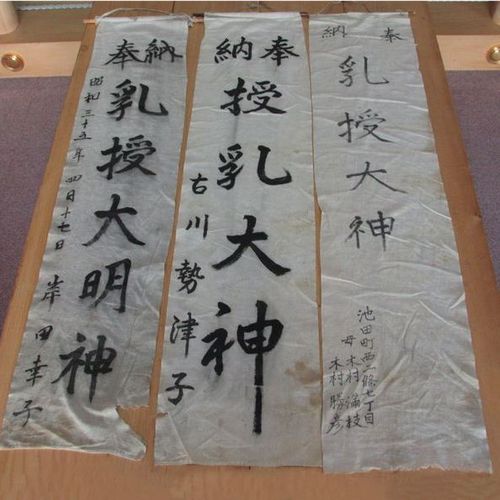 奉納
乳授大神
池田町西二條七丁目
母木村滿枝
木村勝彦
奉納
授乳大神
古川勢津子
奉納
乳授大明神
昭和三十五年四月十七日 岸田幸子